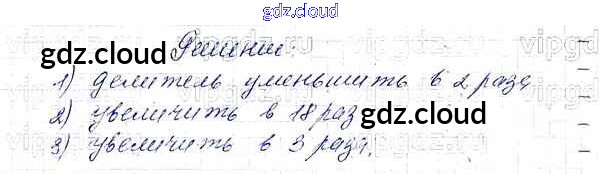 gdz.cloud
gdz.cloud Решение: vipgdz
1) делитель уменьшить в 2 раза
2) увеличить в 18 раз gdz.cloud
3) увеличить в 3 раза.